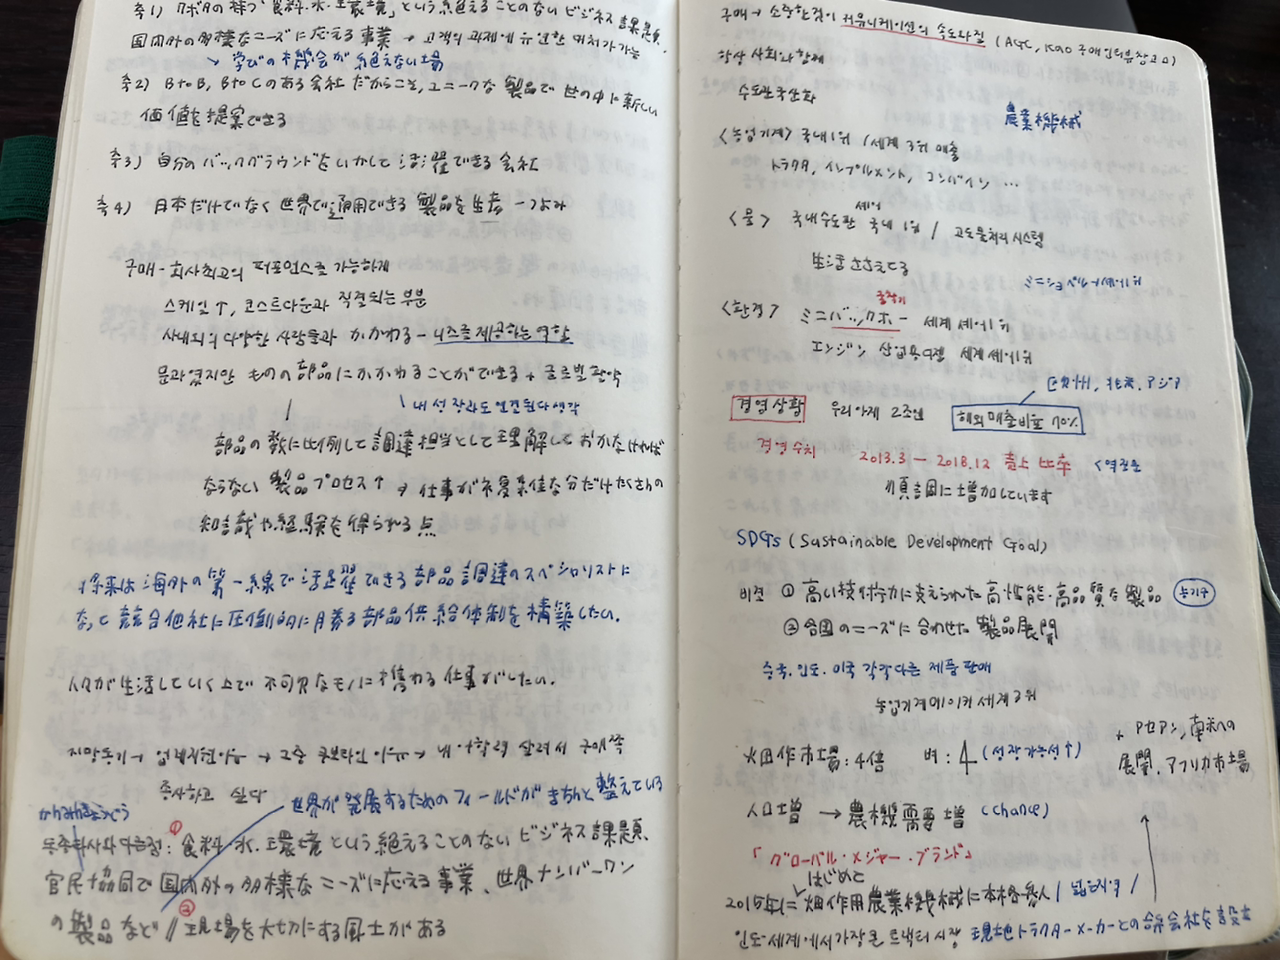 축1) クボタの持つ「食料・水・環境」という絶えることのないビジネス課題、
国内外の多様なニーズに応える事業 → 고객의 과제에 유연한 대처가 가능
↳ 学びの機会が絶えない場
축2) B to B, B to Cのある会社だからこそ、ユニークな製品で世の中に新しい
価値を提案できる
축3) 自分のバックグラウンドをいかして活躍できる会社
축4) 日本だけでなく世界で通用できる製品を生産 - つよみ
구매 - 회사최고의 퍼포먼스를 가능하게
스케일↑, 코스트다운과 직결되는 부분
사내외의 다양한 사람들과 かかわる - 니즈를 제공하는 역할
문과였지만 ものの部品にかかわることができる + 글로벌 활약
내 성장과도 연결된다 생각
部品の数に比例して調達担当として理解しておかなければ
ならない製品プロセス↑ → 仕事が複雑な分だけたくさんの
知識や経験を得られる点
将来は海外の第一線で活躍できる部品調達のスペシャリストに
なって競合他社に圧倒的に勝る部品供給体制を構築したい。
人々が生活していく上で不可欠なモノに携わる仕事がしたい。
지망동기 → 업계지원이유 → 그중 쿠보타인 이유 → 내 어학력 살려서 구매쪽
종사하고 싶다
世界が発展するためのフィールドがきちんと整えている
동종타사와 다른점: ① 食料・水・環境という絶えることのないビジネス課題、
官民協同で国内外の多様なニーズに応える事業、世界ナンバーワン
の製品など // ② 現場を大切にする風土がある
구매 → 소중한것이 커뮤니케이션의 속도와 질 (AGC, Kao 구매인터뷰참고ロ)
항상 사회와 함께
수도관국산화
農業機械
<농업기계> 국내1위 / 세계 3위 매출
トラクタ, インプルメント, コンバイン ...
세계
<물> 국내수도관 국내 1위 / 고도물처리시스템
生活ささえてる
ミニショベル→세계1위
굴착기
<환경> ミニバックホー 세계 셰어1위
エンジン 산업용디젤 세계셰어1위
欧州, 北米, アジア
경영상황 우리아래 2조엔 해외매출비율 70%
경영수치 2013.3 ー 2018.12 売上比率 <연결는
順調に増加しています
SDGs (Sustainable Development Goal)
비전 ① 高い技術力に支えられた高性能・高品質な製品 농기구
② 各国のニーズに合わせた製品展開
중국, 인도, 미국 각각다른 제품 판매
농업기계메이커 세계3위
畑作市場: 4倍 벼: 4 (성장가능성↑)
+ アセアン, 南米への
展開, アフリカ市場
人口増 → 農機需要増 (Chance)
「グローバル・メジャー・ブランド」
はじめて
2015年に畑作用農業機械に本格参入 /
인도-세계에서가장큰 트랙터시장 現地トラクターメーカーとの合弁会社を設立